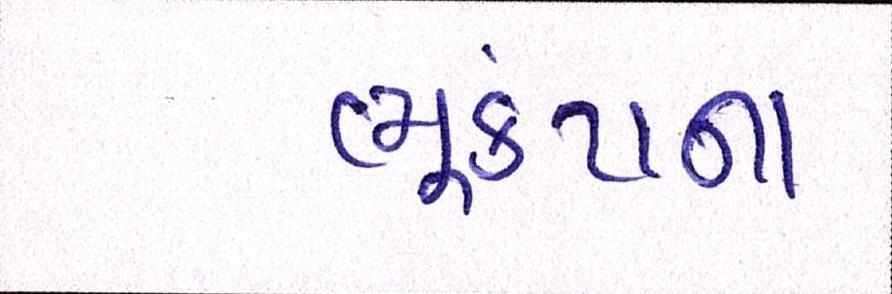 ભૂકંપના